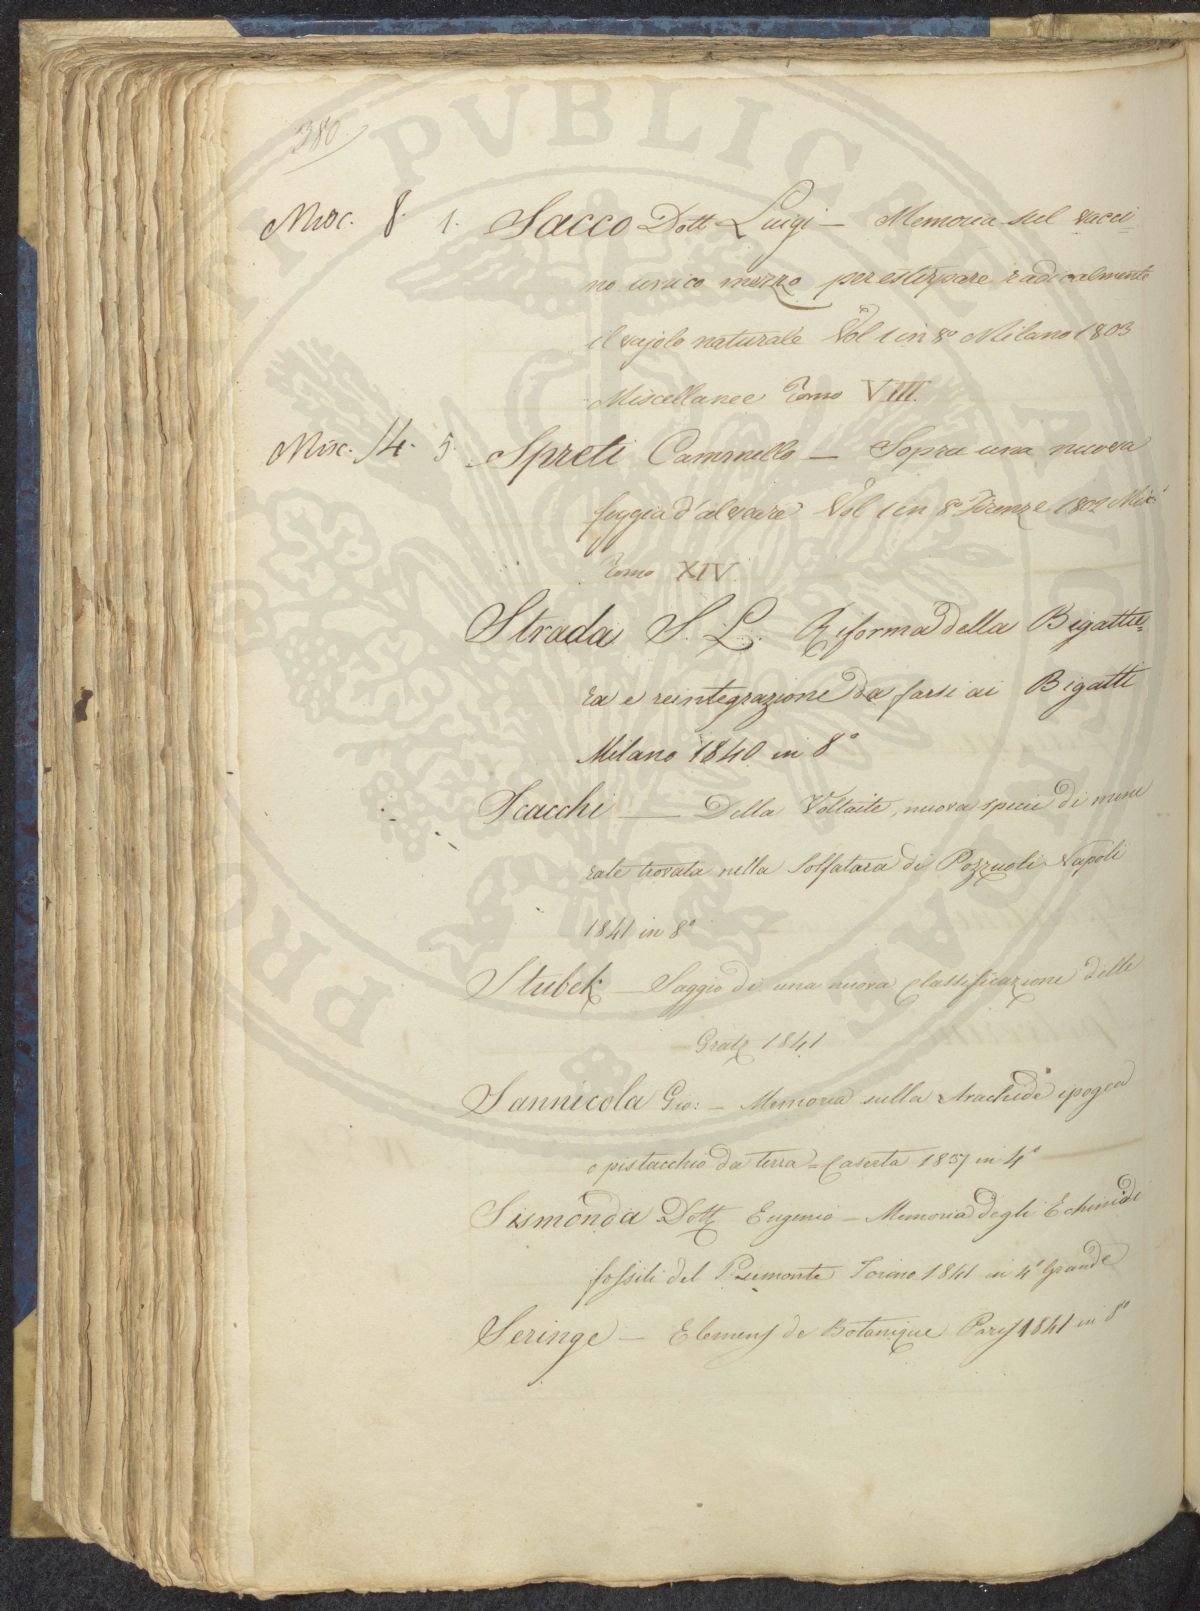 380.
Misc. 8. 1. Sacco Dott Luigi — Memoria sul vacci-
no unico mezzo per estirpare radicalmente
il vajolo naturale Vol 1 in 8º Milano 1803
Miscellanee Tomo VIII.
Misc. 14. 5. Spreti Cammillo — Sopra una nuova
foggia d'alveare Vol 1 in 8º Firenze 1802 Misc.
Tomo XIV.
Strada S. L. Riforma della Bigattie-
ra e reintegrazione da farsi ai Bigatti
Milano 1840 in 8º
Scacchi — Della Voltaite, nuova specie di mine
rale trovata nella Solfatara di Pozzuoli Napoli
1841 in 8º
Stubek — Saggio di una nuova classificazione delle
Gratz 1841
Sannicola Gio: — Memoria sulla Arachide ipogea
o pistacchio da terra = Caserta 1837 in 4º
Sismonda Dott Eugenio — Memoria degli Echinidi
fossili del Piemonte Torino 1841 in 4º Grande
Seringe — Elemens de Botanique Paris 1841 in 8º